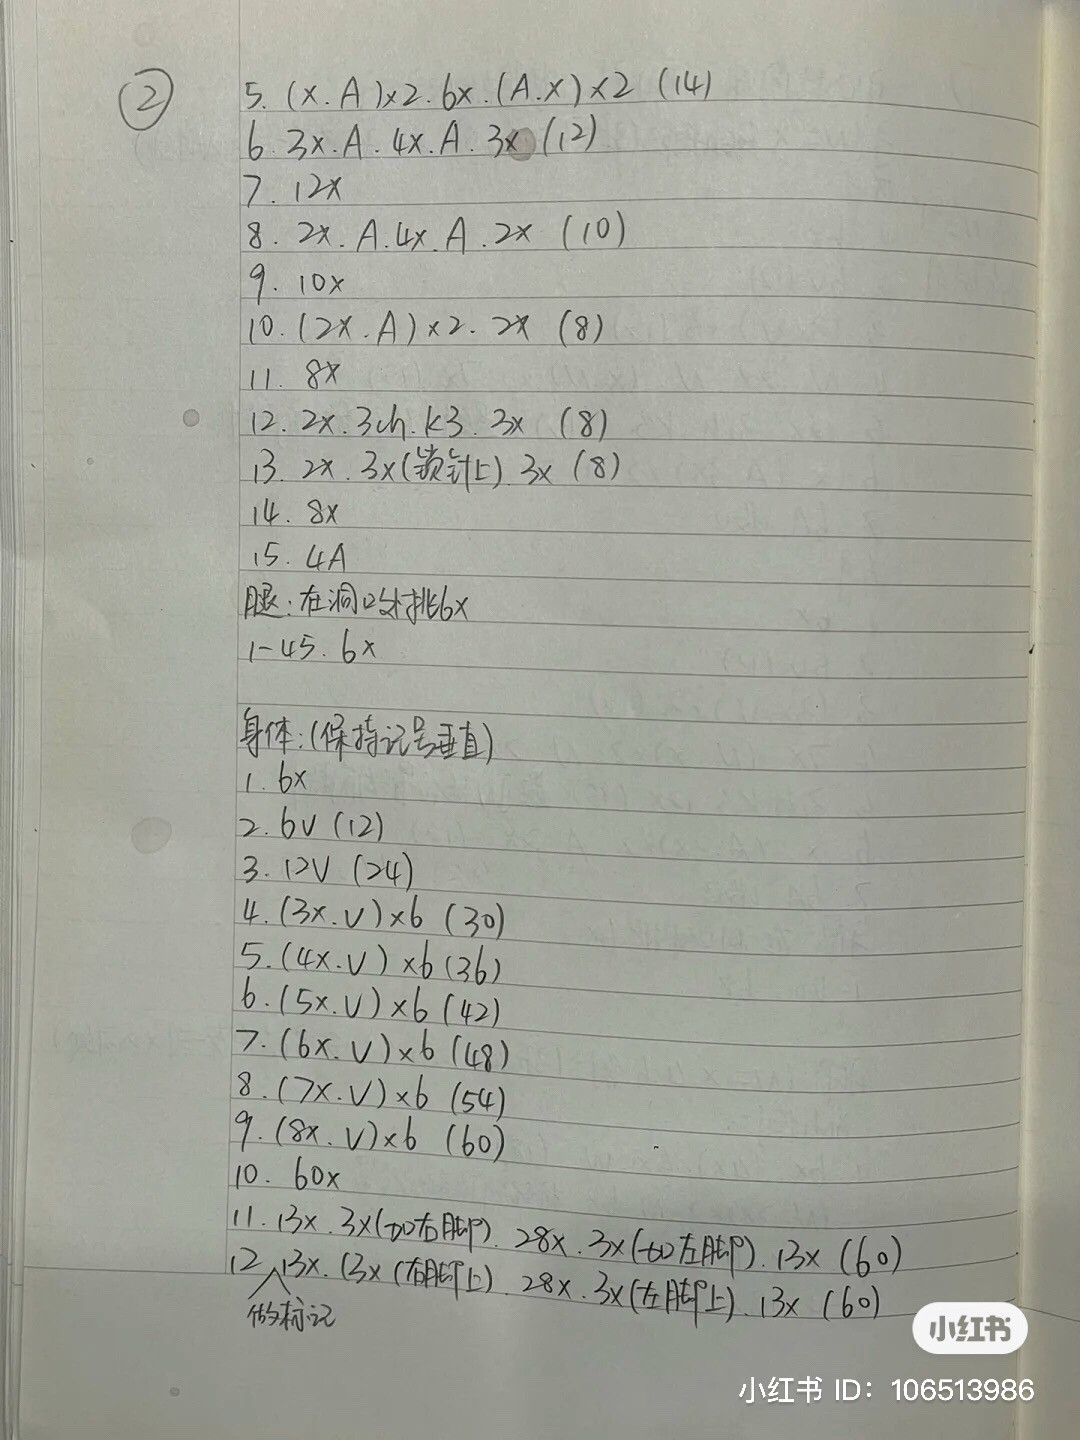 ②
5. (x.A)x2.6x.(A.x)x2 (14)
6.3x.A.4x.A.3x (12)
7.12x
8. 2x.A.4x.A.2x (10)
9.10x
10.(2x.A)x2.2x (8)
11. 8x
12.2x.3ch.k3.3x (8)
13.2x.3x(锁针上).3x (8)
14.8x
15.4A
腿:在洞口处挑6x
1-45.6x
身体:(保持记号垂直)
1.6x
2.6V (12)
3.12V (24)
4.(3x.V)x6 (30)
5.(4x.V)x6 (36)
6.(5x.V)x6 (42)
7.(6x.V)x6 (48)
8.(7x.V)x6 (54)
9.(8x.V)x6 (60)
10. 60x
11.13x.3x(加右脚).28x.3x(加左脚).13x (60)
12.13x.(3x(右脚上).28x.3x(左脚上).13x (60)
做标记
小红书
小红书 ID: 106513986